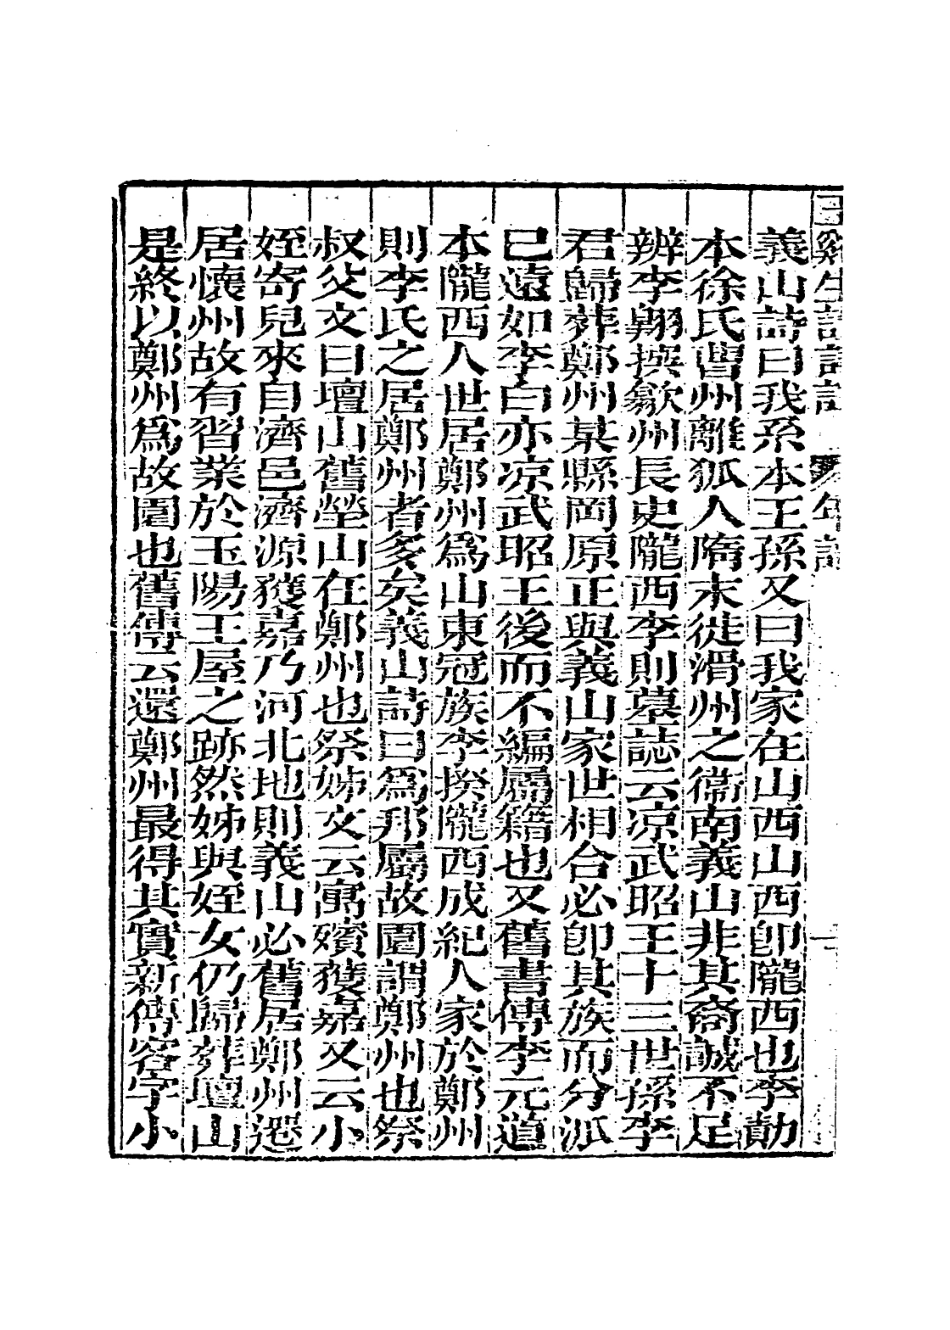 義山詩曰我系本王孫又曰我家在山西山西卽隴西也李勣
本徐氏曹州離狐人隋末徙滑州之衞南義山非其裔誠不足
辨李翺撰歙州長史隴西李則墓誌云凉武昭王十三世孫李
君歸葬鄭州某縣岡原正與義山家世相合必卽其族而分派
已遠如李白亦凉武昭王後而不編屬籍也又舊書傳李元道
本隴西人世居鄭州爲山東冠族李揆隴西成紀人家於鄭州
則李氏之居鄭州者多矣義山詩曰爲邦屬故園謂鄭州也祭
叔父文曰壇山舊塋山在鄭州也祭姊文云寓殯獲嘉又云小
姪寄兒來自濟邑濟源獲嘉乃河北地則義山必舊居鄭州遷
居懷州故有習業於玉陽王屋之跡然姊與姪女仍歸葬壇山
是終以鄭州爲故園也舊傳云還鄭州最得其實新傳客字小